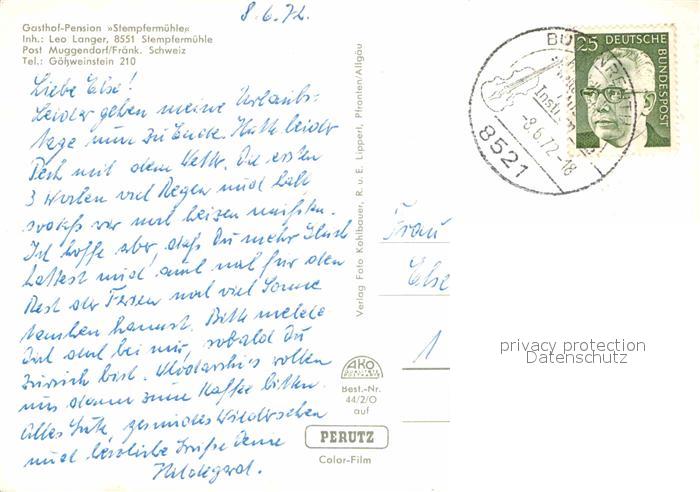 8.6.72.
Gasthof-Pension »Stempfermühle«
Inh.: Leo Langer, 8551 Stempfermühle
Post Muggendorf/Fränk. Schweiz
Tel.: Gößweinstein 210
Liebe Else!
Leider gehen meine Urlaubs-
tage nun zu Ende. Hatte leider
Pech mit dem Wetter. Die ersten
3 Wochen viel Regen und kalt,
sodaß wir noch heizen mußten.
Ich hoffe aber, daß Du mehr Glück
hattest und auch noch für den
Rest der Ferien noch viel Sonne
tanken kannst. Bitte melde
Dich doch bei mir, sobald Du
zurück bist. wollen
uns dann zum Kaffee bitten.
Alles Gute, gesundes Wiedersehen
und herzliche Grüße Deine
Hildegard.
Verlag Foto Kohlbauer, R. u. E. Lipperl, Pfronten/Allgäu
AKO
Best.-Nr.
44/2/O
auf
PERUTZ
Color-Film
Frau
Else
1
25 DEUTSCHE
BUNDESPOST
-8.6.72-18
8521
privacy protection
Datenschutz